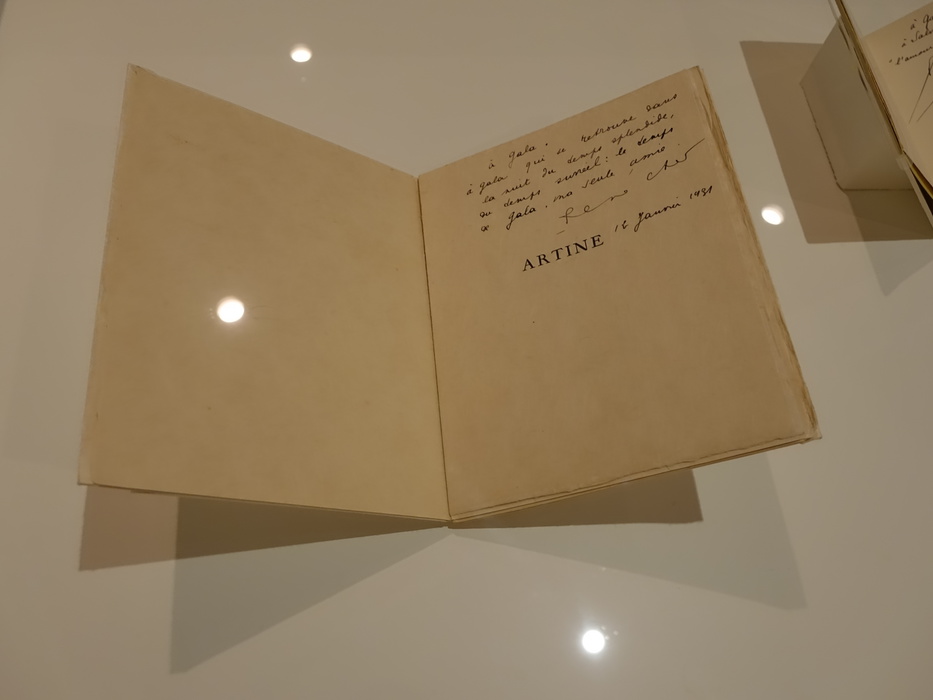 à Gala.
à Gala qui se retrouve dans
la nuit du temps splendide,
du temps sensuel: le temps
de Gala, ma seule amie
René Char
ARTINE
Janvier 1931
à
à
"l'amour